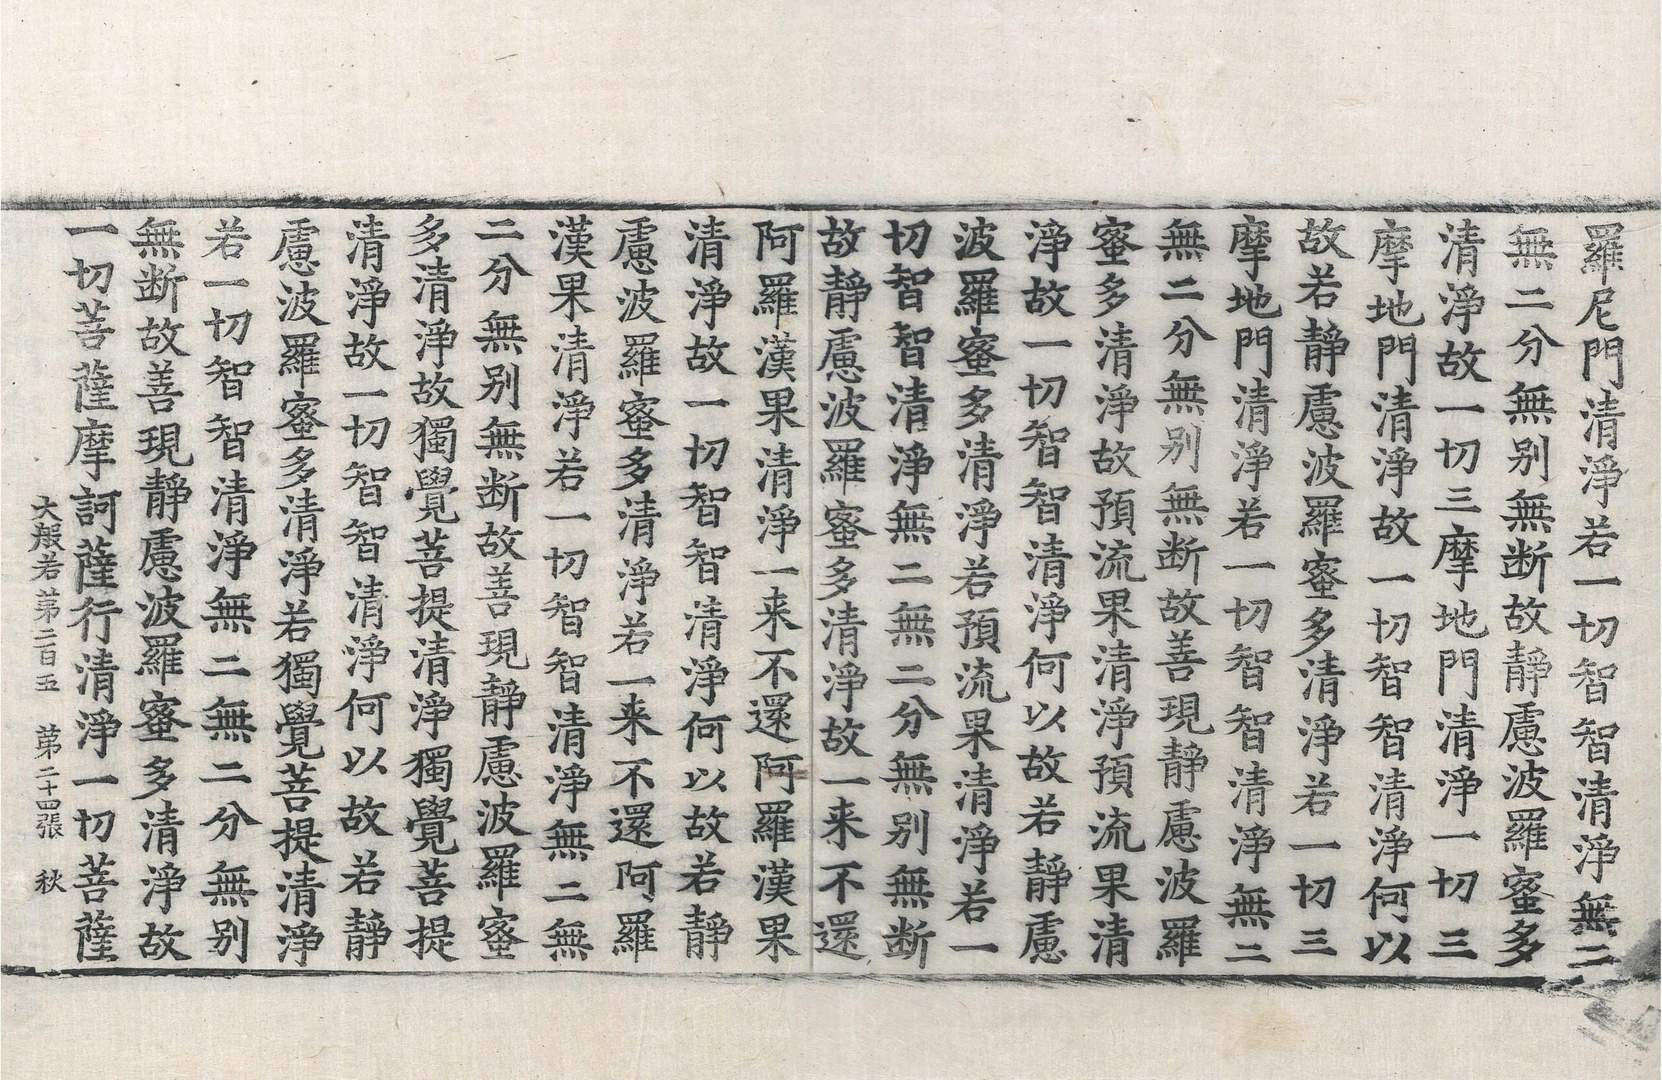 羅尼門清淨若一切智智清淨無二
無二分無别無断故靜慮波羅蜜多
清淨故一切三摩地門清淨一切三
摩地門清淨故一切智智清淨何以
故若靜慮波羅蜜多清淨若一切三
摩地門清淨若一切智智清淨無二
無二分無别無断故善現靜慮波羅
蜜多清淨故預流果清淨預流果清
淨故一切智智清淨何以故若靜慮
波羅蜜多清淨若預流果清淨若一
切智智清淨無二無二分無别無断
故靜慮波羅蜜多清淨故一来不還
阿羅漢果清淨一来不還阿羅漢果
清淨故一切智智清淨何以故若靜
慮波羅蜜多清淨若一来不還阿羅
漢果清淨若一切智智清淨無二無
二分無别無断故善現靜慮波羅蜜
多清淨故獨覺菩提清淨獨覺菩提
清淨故一切智智清淨何以故若靜
慮波羅蜜多清淨若獨覺菩提清淨
若一切智智清淨無二無二分無别
無断故善現靜慮波羅蜜多清淨故
一切菩薩摩訶薩行清淨一切菩薩
大般若第二百五 第二十四張 秋